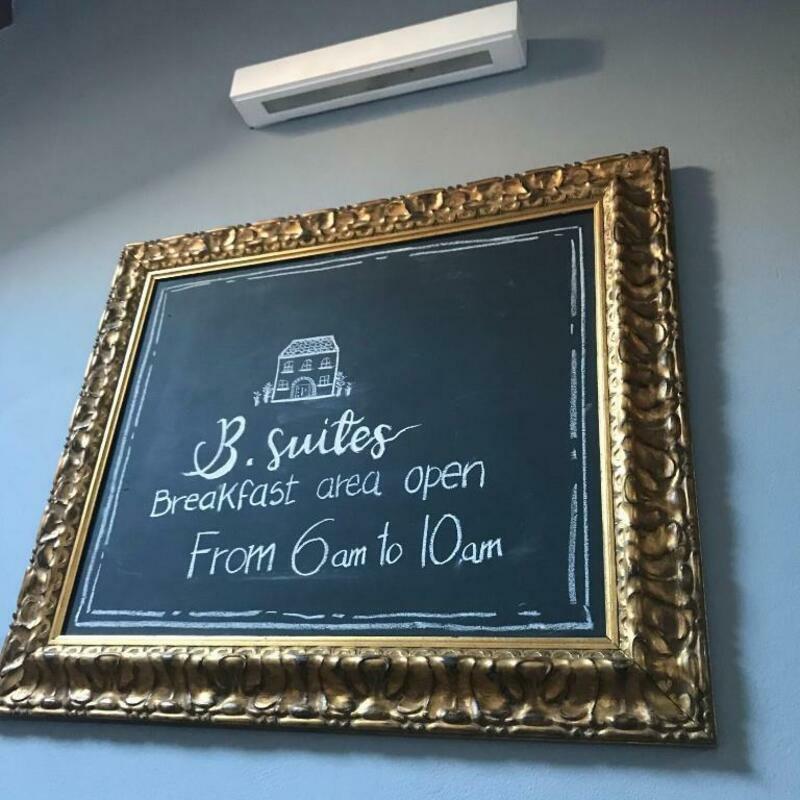 B. suites
Breakfast area open
From 6am to 10am